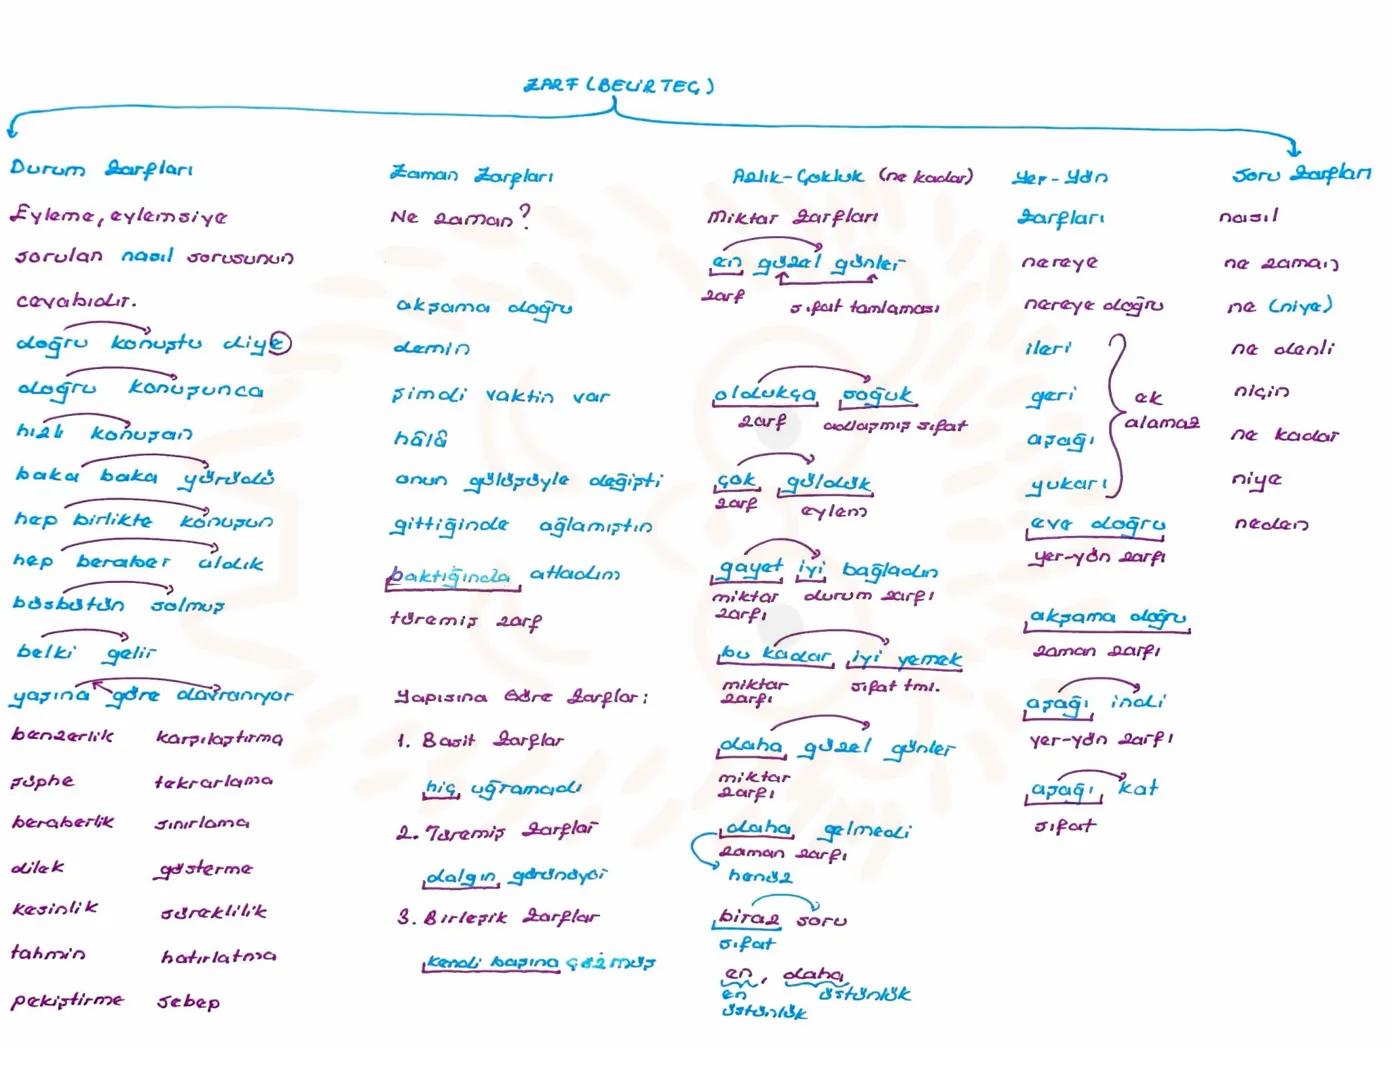 ZARF (BELİRTEÇ)
Durum Zarfları
Eyleme, eylemsiye
sorulan nasıl sorusunun
cevabıdır.
doğru konuştu diye
doğru konuşunca
hızlı konuşan
baka baka yürüdü
hep birlikte konuşun
hep beraber aldık
büsbütün solmuş
belki gelir
yaşına göre davranıyor
benzerlik karşılaştırma
şüphe tekrarlama
beraberlik sınırlama
dilek gösterme
kesinlik süreklilik
tahmin hatırlatma
pekiştirme sebep
Zaman Zarfları
Ne zaman?
akşama doğru
demin
şimdi vaktin var
hâlâ
onun gülüşüyle değişti
gittiğinde ağlamıştın
baktığında atladım
türemiş zarf
Yapısına Göre Zarflar:
1. Basit Zarflar
hiç uğramadı
2. Türemiş Zarflar
dalgın görünüyor
3. Birleşik Zarflar
kendi başına çözmüş
Azlık-Çokluk (ne kadar)
Miktar Zarfları
en güzel günler
zarf sıfat tamlaması
oldukça soğuk
zarf adlaşmış sıfat
çok güldük
zarf eylem
gayet iyi bağladın
miktar durum zarfı
zarfı
bu kadar iyi yemek
miktar sıfat tml.
zarfı
daha güzel günler
miktar
zarfı
daha gelmedi
zaman zarfı
henüz
biraz soru
sıfat
en, daha
en üstünlük
üstünlük
Yer-Yön
Zarfları
nereye
nereye doğru
ileri
geri
aşağı
yukarı
ek
alamaz
eve doğru
yer-yön zarfı
akşama doğru
zaman zarfı
aşağı indi
yer-yön zarfı
aşağı kat
sıfat
Soru Zarfları
nasıl
ne zaman
ne (niye)
ne denli
niçin
ne kadar
niye
neden